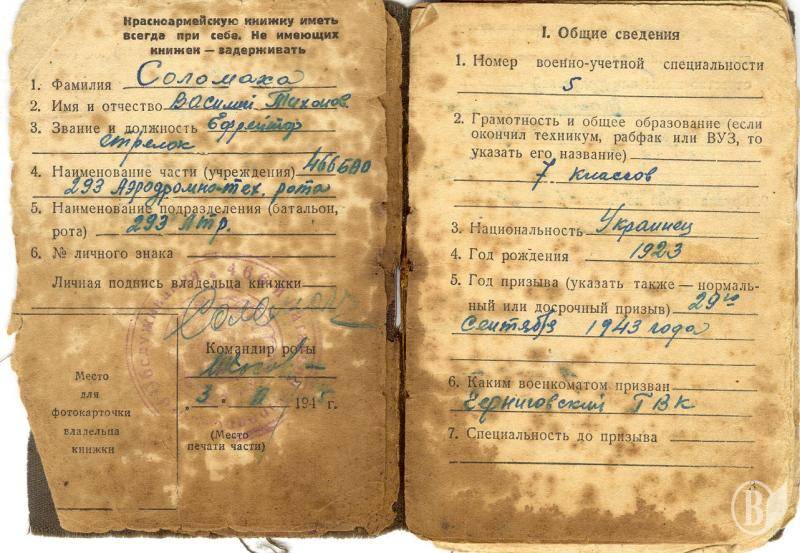 Красноармейскую книжку иметь
всегда при себе. Не имеющих
книжек — задерживать
1. Фамилия Соломаха
2. Имя и отчество Василий Тихонов.
3. Звание и должность Ефрейтор
стрелок
4. Наименование части (учреждения) 466 БАО
293 Аэродромно тех. рота
5. Наименование подразделения (батальон,
рота) 293 Атр.
6. № личного знака
Личная подпись владельца книжки
Командир роты
3 194 г.
(Место
печати части)
Место
для
фотокарточки
владельца
книжки
I. Общие сведения
1. Номер военно-учетной специальности
5
2. Грамотность и общее образование (если
окончил техникум, рабфак или ВУЗ, то
указать его название)
7 классов
3. Национальность Украинец
4. Год рождения 1923
5. Год призыва (указать также — нормаль-
ный или досрочный призыв) 29го
Сентября 1943 года
6. Каким военкоматом призван
Черниговский ГВК
7. Специальность до призыва
В